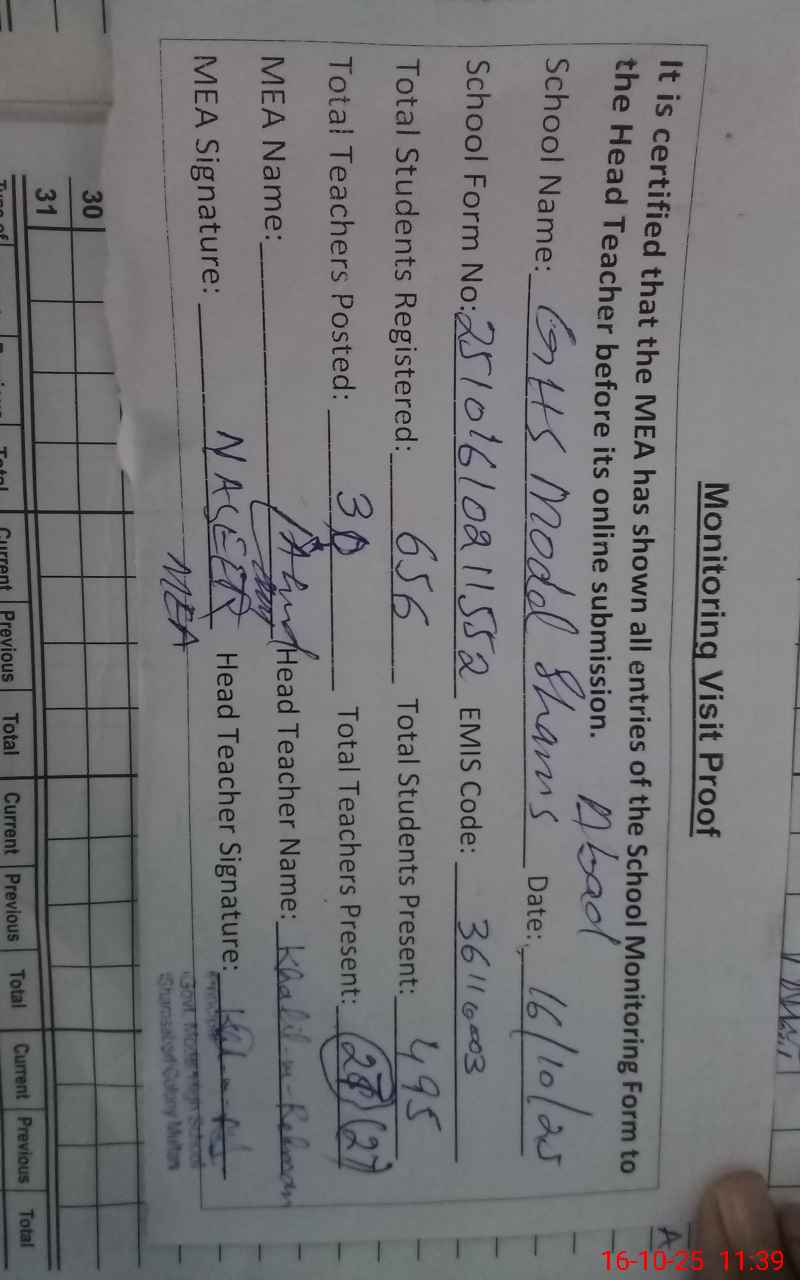 Monitoring Visit Proof
It is certified that the MEA has shown all entries of the School Monitoring Form to
the Head Teacher before its online submission.
School Name: GHS Model Shams Abad Date: 16/10/25
School Form No: EMIS Code:
Total Students Registered: 656 Total Students Present: 495
Total Teachers Posted: 30 Total Teachers Present: (27)
MEA Name: Head Teacher Name: Khalil-ur-Rehman
MEA Signature: NASEER Head Teacher Signature:
MEA
Principal
Govt. Model High School
Shamsabad Colony Multan
30
31
Total Current Previous Total Current Previous Total Current Previous Total
A
16-10-25 11:39